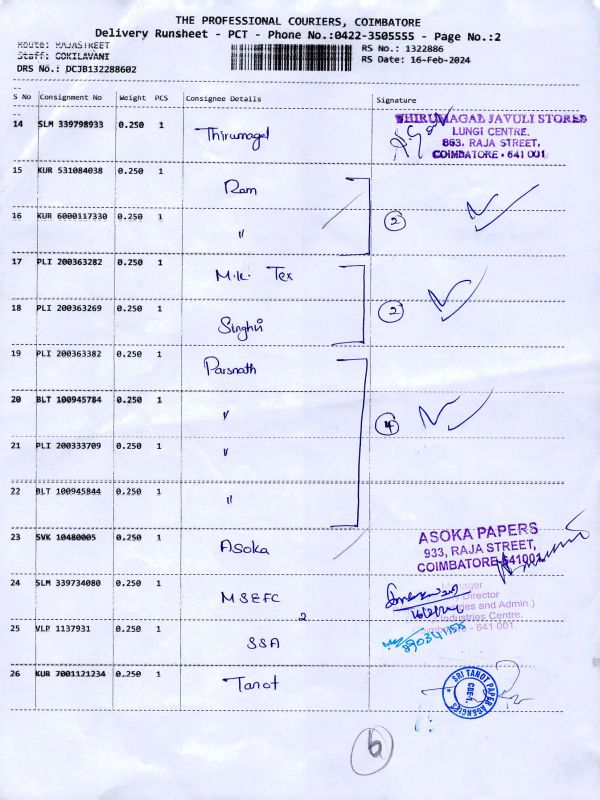 THE PROFESSIONAL COURIERS, COIMBATORE
Delivery Runsheet - PCT - Phone No.:0422-3505555 - Page No.:2
Route: RAJASTREET
Staff: GOKILAVANI
DRS No.: DCJB132288602
RS No.: 1322886
RS Date: 16-Feb-2024
S No Consignment No Weight PCS Consignee Details Signature
14 SLM 339798933 0.250 1 Thirumagal
THIRUMAGAL JAVULI STORES
LUNGI CENTRE.
863, RAJA STREET,
COIMBATORE - 641 001
15 KUR 531084038 0.250 1 Ram
16 KUR 6000117330 0.250 1 " 2
17 PLI 200363282 0.250 1 M.K. Tex
18 PLI 200363269 0.250 1 Singhvi 2
19 PLI 200363382 0.250 1 Parsnath
20 BLT 100945784 0.250 1 " 4
21 PLI 200333709 0.250 1 "
22 BLT 100945844 0.250 1 "
23 SVK 10480005 0.250 1 Asoka
ASOKA PAPERS
933, RAJA STREET,
COIMBATORE-641001
24 SLM 339734080 0.250 1 MSEFC
Manager
Director
ies and Admin.)
Industries Centre.
- 641 001.
2
25 VLP 1137931 0.250 1 SSA
26 KUR 7001121234 0.250 1 Tanot
SRI TANOT PAPER AGENCIES
CBE-1.
6